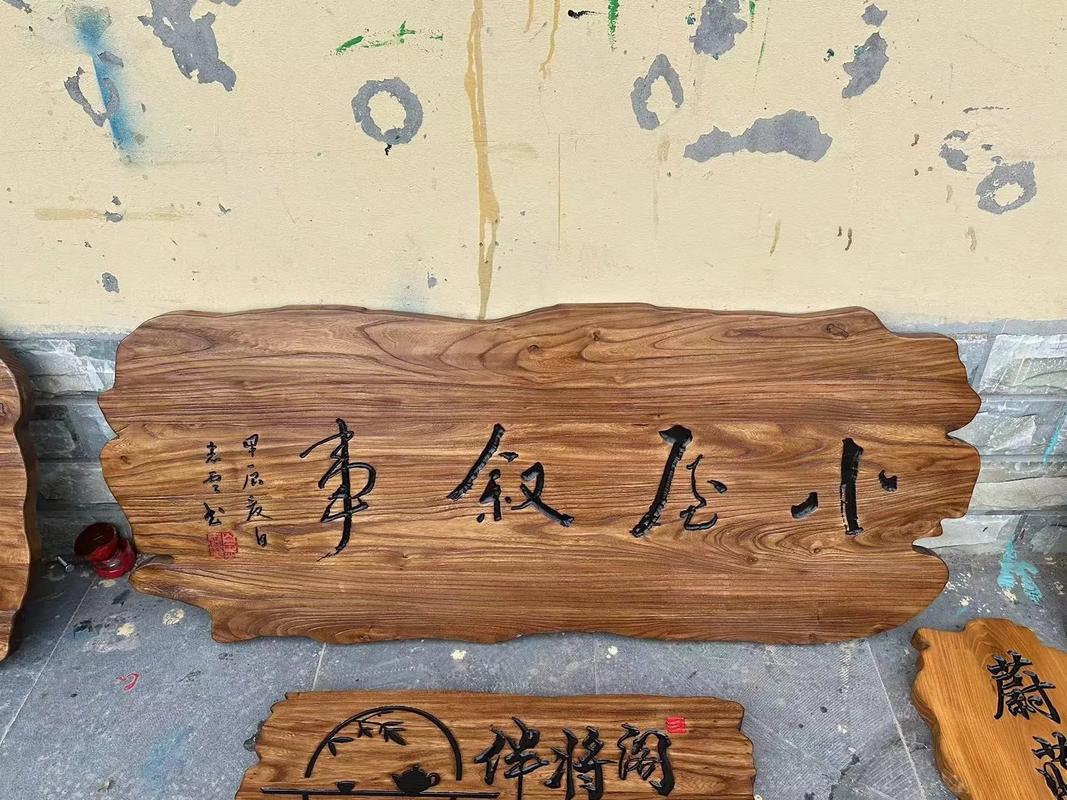 小屋叙事
甲辰夏日
志云书
伴将阁
蔚